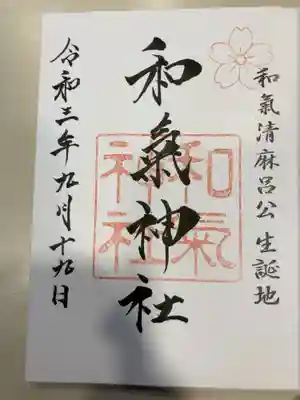 和氣清麻呂公 生誕地
和氣神社
和氣
神社
令和三年九月十九日